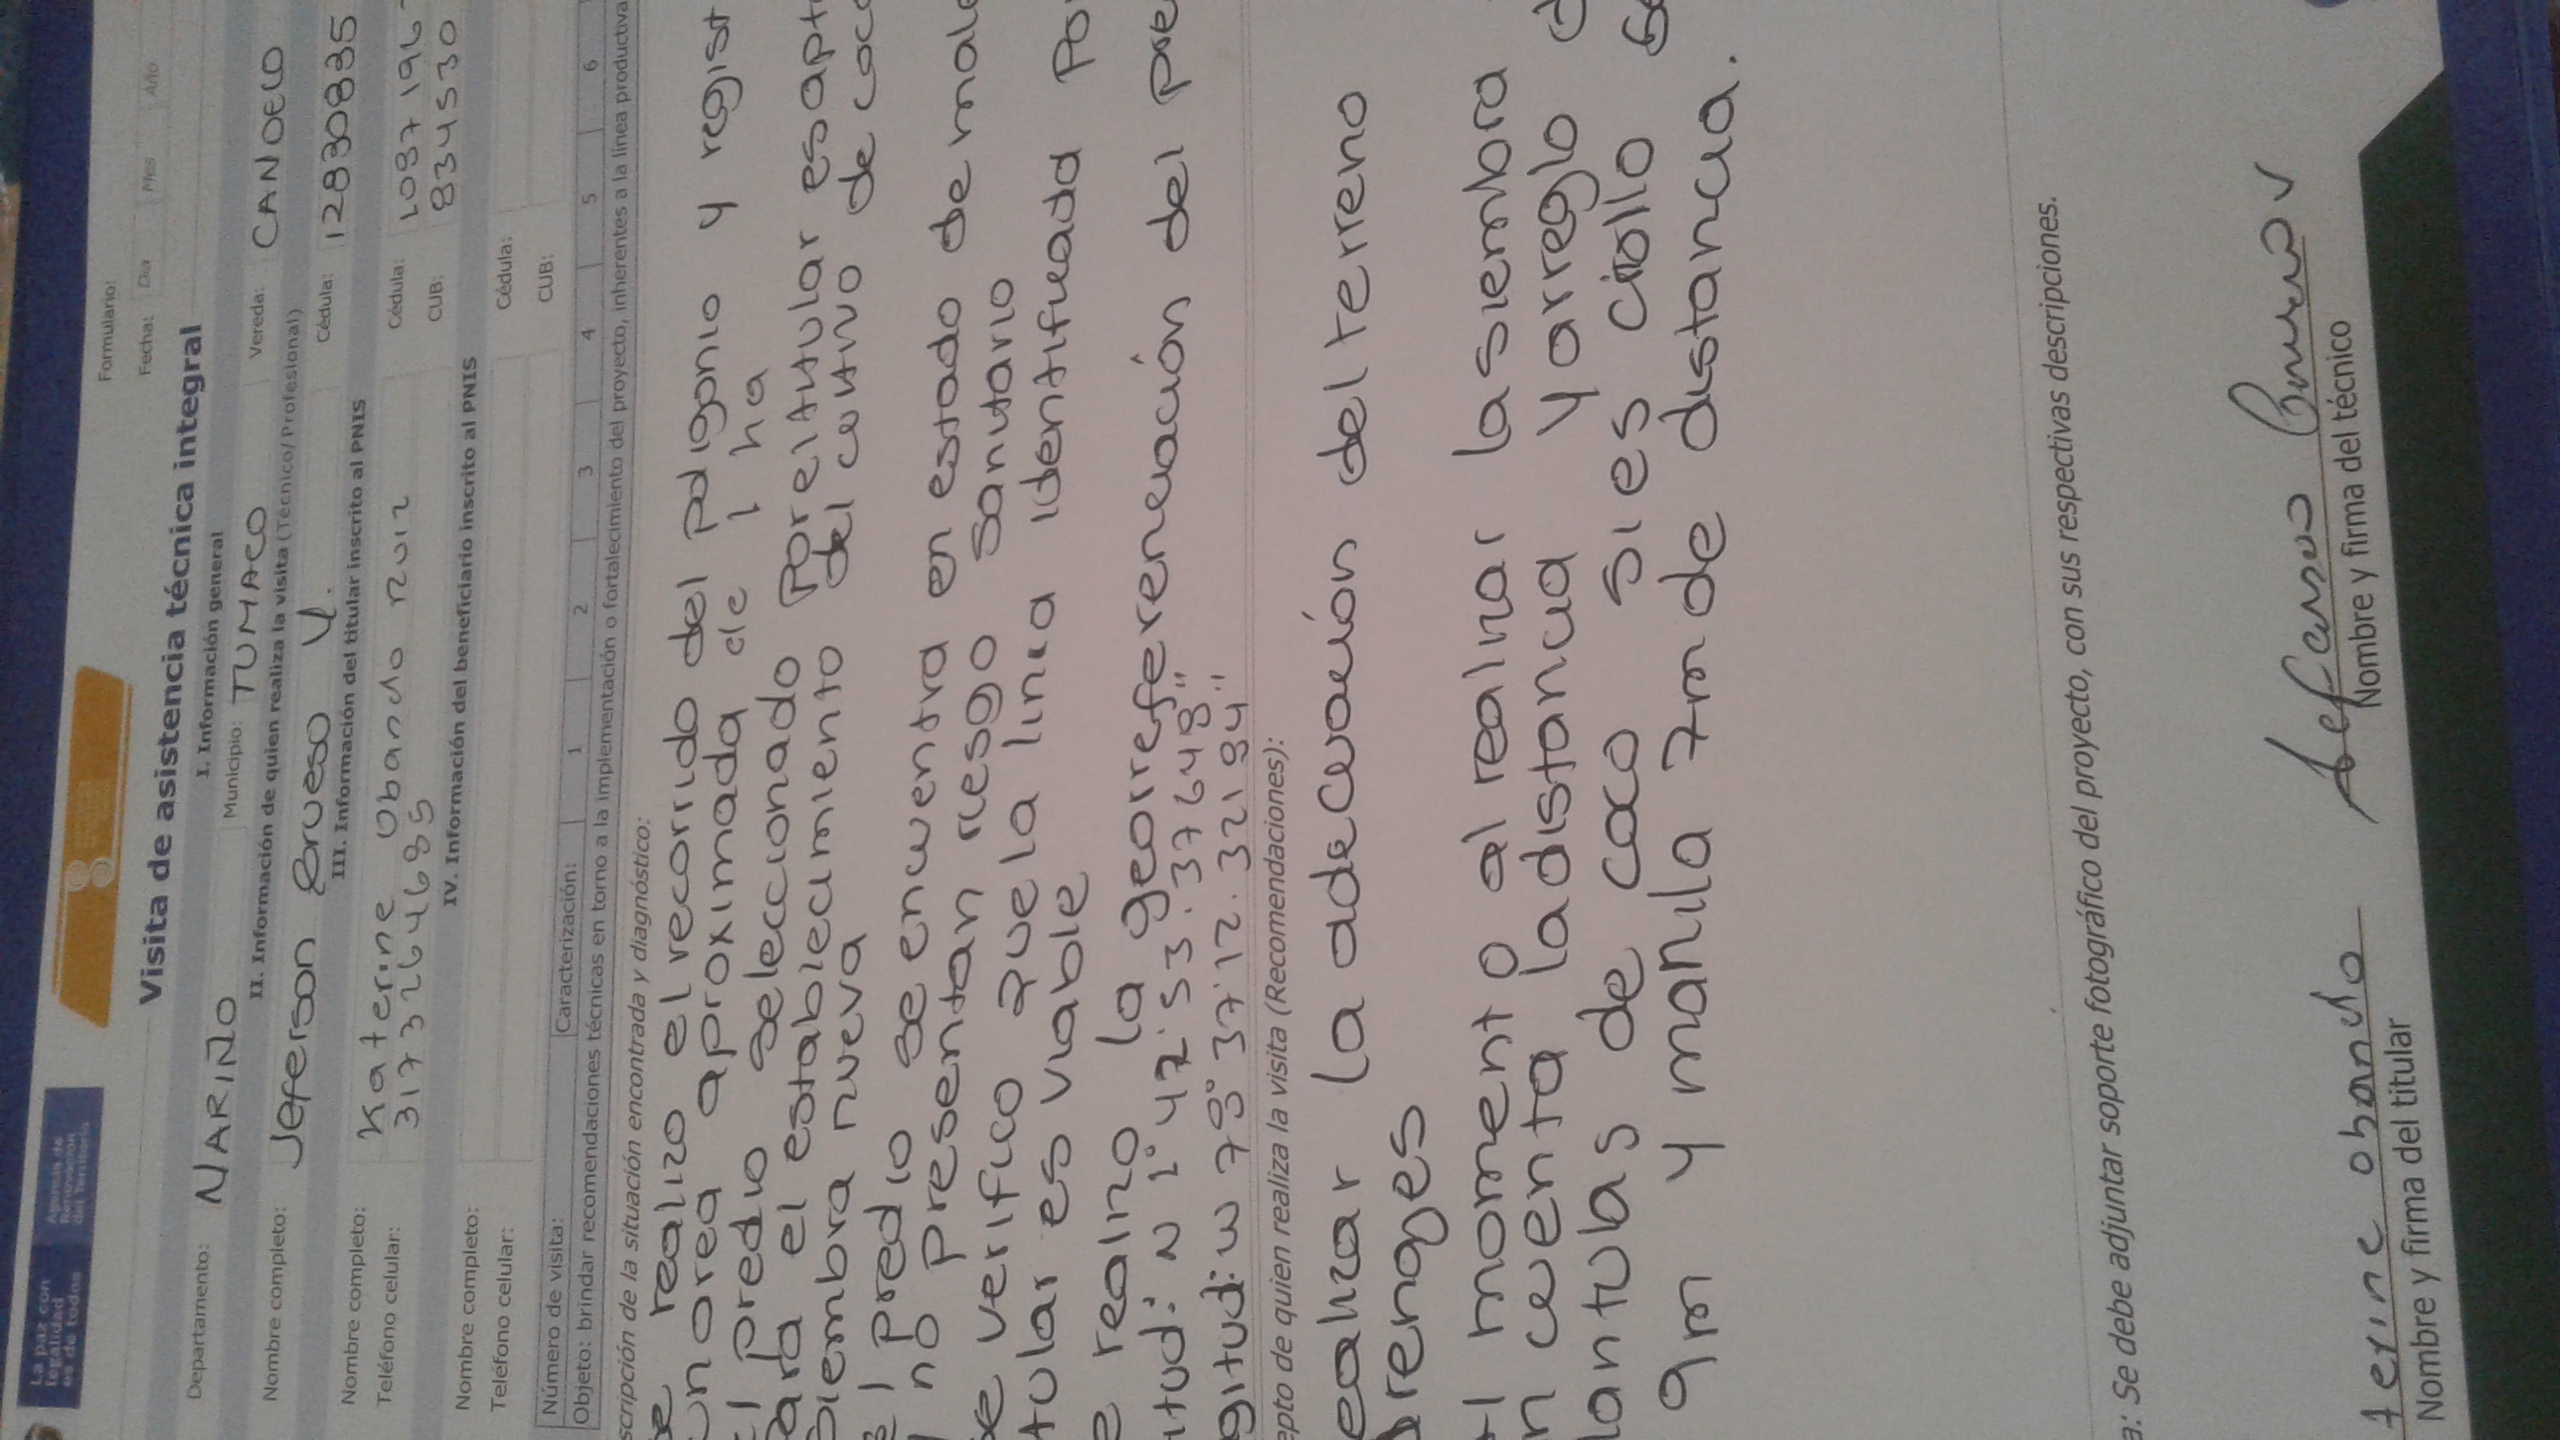 La paz con
legalidad
es de todos
Agencia de
Renovación
del Territorio
Formulario:
Visita de asistencia técnica integral
Fecha: Día Mes Año
I. Información general
Departamento: NARIÑO Municipio: TUMACO Vereda: CANDELO
II. Información de quien realiza la visita (Técnico/Profesional)
Nombre completo: Jeferson Cédula: 12830835
III. Información del titular inscrito al PNIS
Nombre completo: Katerine Obando Ruiz Cédula: 1087196
Teléfono celular: 3173264685 CUB: 834530
IV. Información del beneficiario inscrito al PNIS
Nombre completo: Cédula:
Teléfono celular: CUB:
Número de visita: 1 2 3 4 5 6
Caracterización:
Objeto: brindar recomendaciones técnicas en torno a la implementación o fortalecimiento del proyecto, inherentes a la línea productiva
scripción de la situación encontrada y diagnóstico:
se realizo el recorrido del poligonio y regist
un area aproximada de 1 ha
El predio seleccionado por el titular es apto
para el establecimiento del cultivo de coco
siembra nueva
el predio se encuentra en estado de male
y no presentan riesgo sanitario
se verifico que la linea identificada po
tular es viable
e realizo la georreferenciación del pre
itud: N 1° 47' 53. 37648"
gitud: W 78° 37' 12. 32184"
epto de quien realiza la visita (Recomendaciones):
ealizar la adecuación del terreno
Drenages
Al momento al realizar la siembra
n cuenta la distancia y arreglo d
lantulas de coco si es ciollo se
9m y manila 7m de distancia.
a: Se debe adjuntar soporte fotográfico del proyecto, con sus respectivas descripciones.
terine obando
Nombre y firma del titular Nombre y firma del técnico